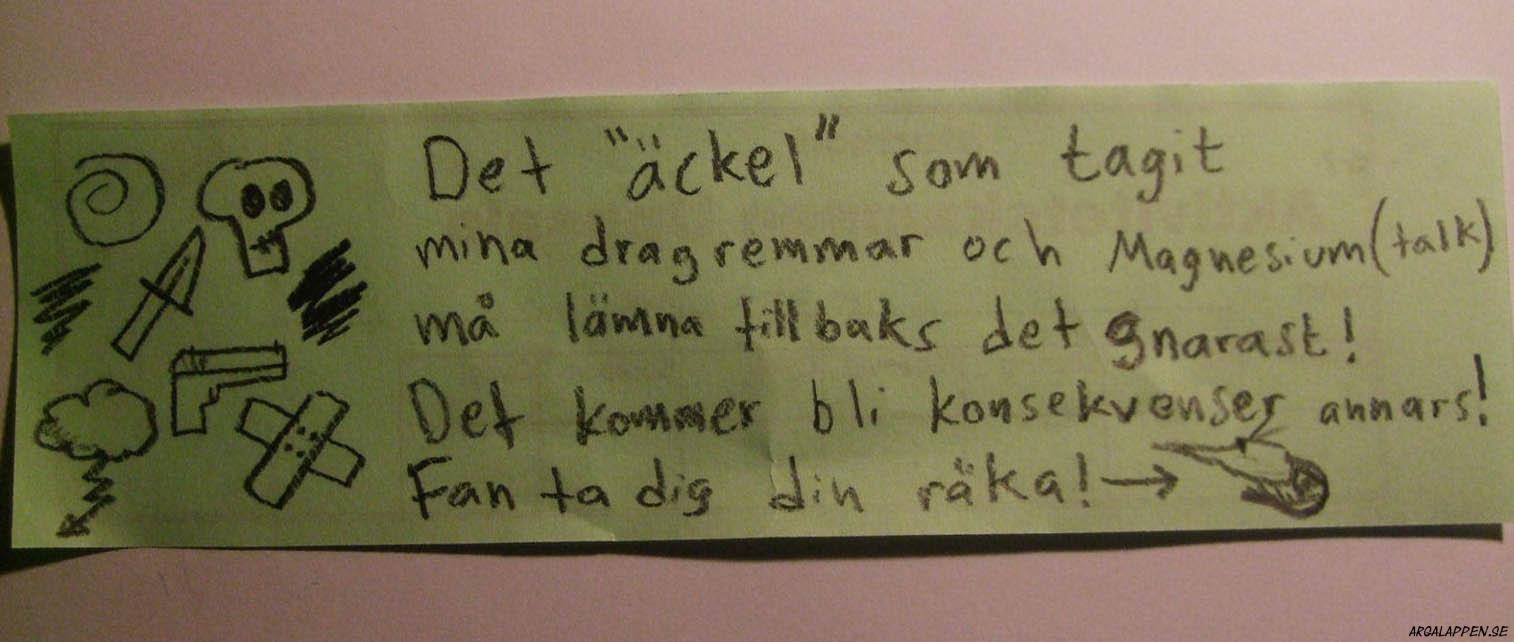 Det "äckel" som tagit
mina dragremmar och Magnesium (talk)
må lämna tillbaks det gnarast!
Det kommer bli konsekvenser annars!
Fan ta dig din räka! →
ARGALAPPEN.SE